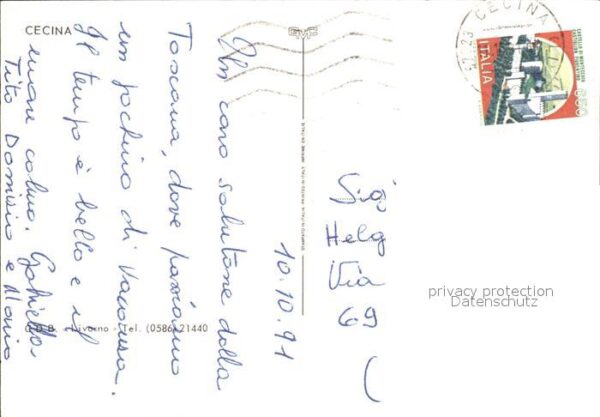 CECINA
EMF
Un caro salutone dalla
Toscana, dove passiamo
un pochino di vacanza.
Il tempo è bello e il
mare calmo. Gabriella
Tito Domizio e Mario
10.10.91
G.D.B. - Livorno - Tel. (0586) 21440
Helg
Via
69
CECINA
ITALIA
650
privacy protection
Datenschutz